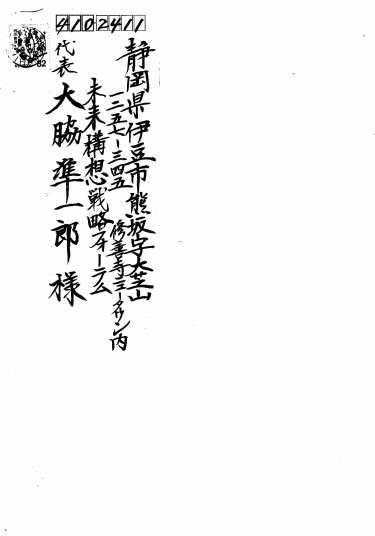 4102411
静岡県伊豆市熊坂字大芝山
一二五七ー三四五
修善寺ニュータウン内
未来構想戦略フォーラム
代表
大脇準一郎様
82